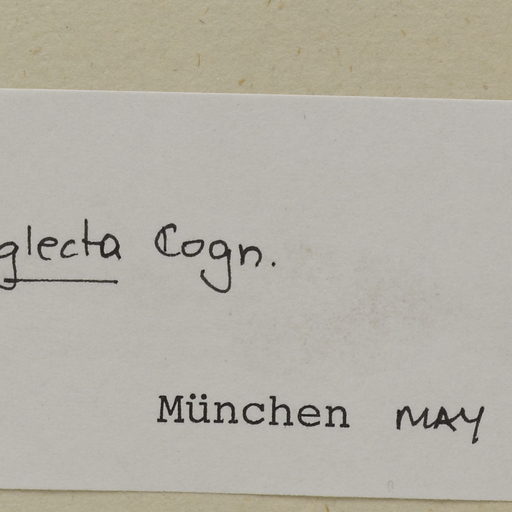 glecta Cogn.
München MAY